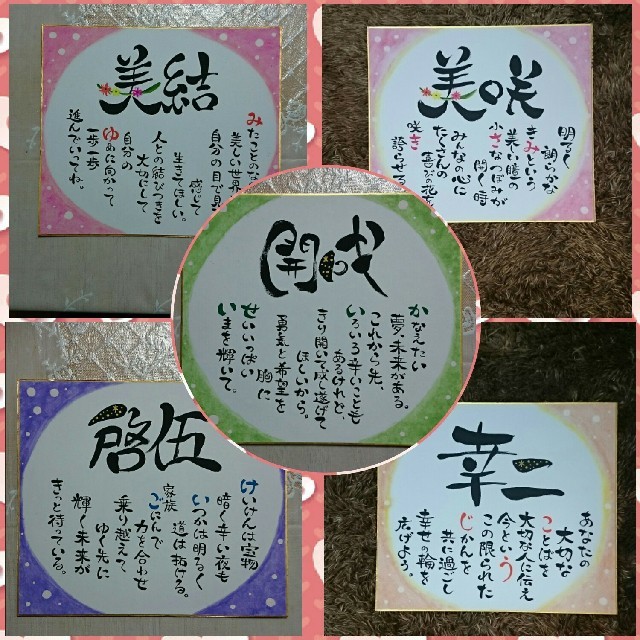 美結
みたことのな
美しい世界
自分の目で見
感じて
生きてほしい。
人との結びつきを
大切にして
自分の
ゆめに向かって
一歩一歩
進んでいってね。
美咲
明るく
朗らかな
きみという
美しい瞳の
小さなつぼみが
開く時
みんなの心に
たくさんの
喜びの花を
咲き
誇らせる
開成
かなえたい
夢、未来がある。
これから先、
いろいろ辛いことも
あるけれど、
きり開いて成し遂げて
ほしいから。
勇気と希望を
胸に
せいいっぱい
いまを輝いて。
啓伍
けいけんは宝物
暗く辛い夜も
いつかは明るく
道は拓ける。
家族
ごにんで
力を合わせ
乗り越えて
ゆく先に
輝く未来が
きっと待っている。
幸二
あなたの
大切な
ことばを
大切な人に伝え
今という
この限られた
じかんを
共に過ごし
幸せの輪を
広げよう。